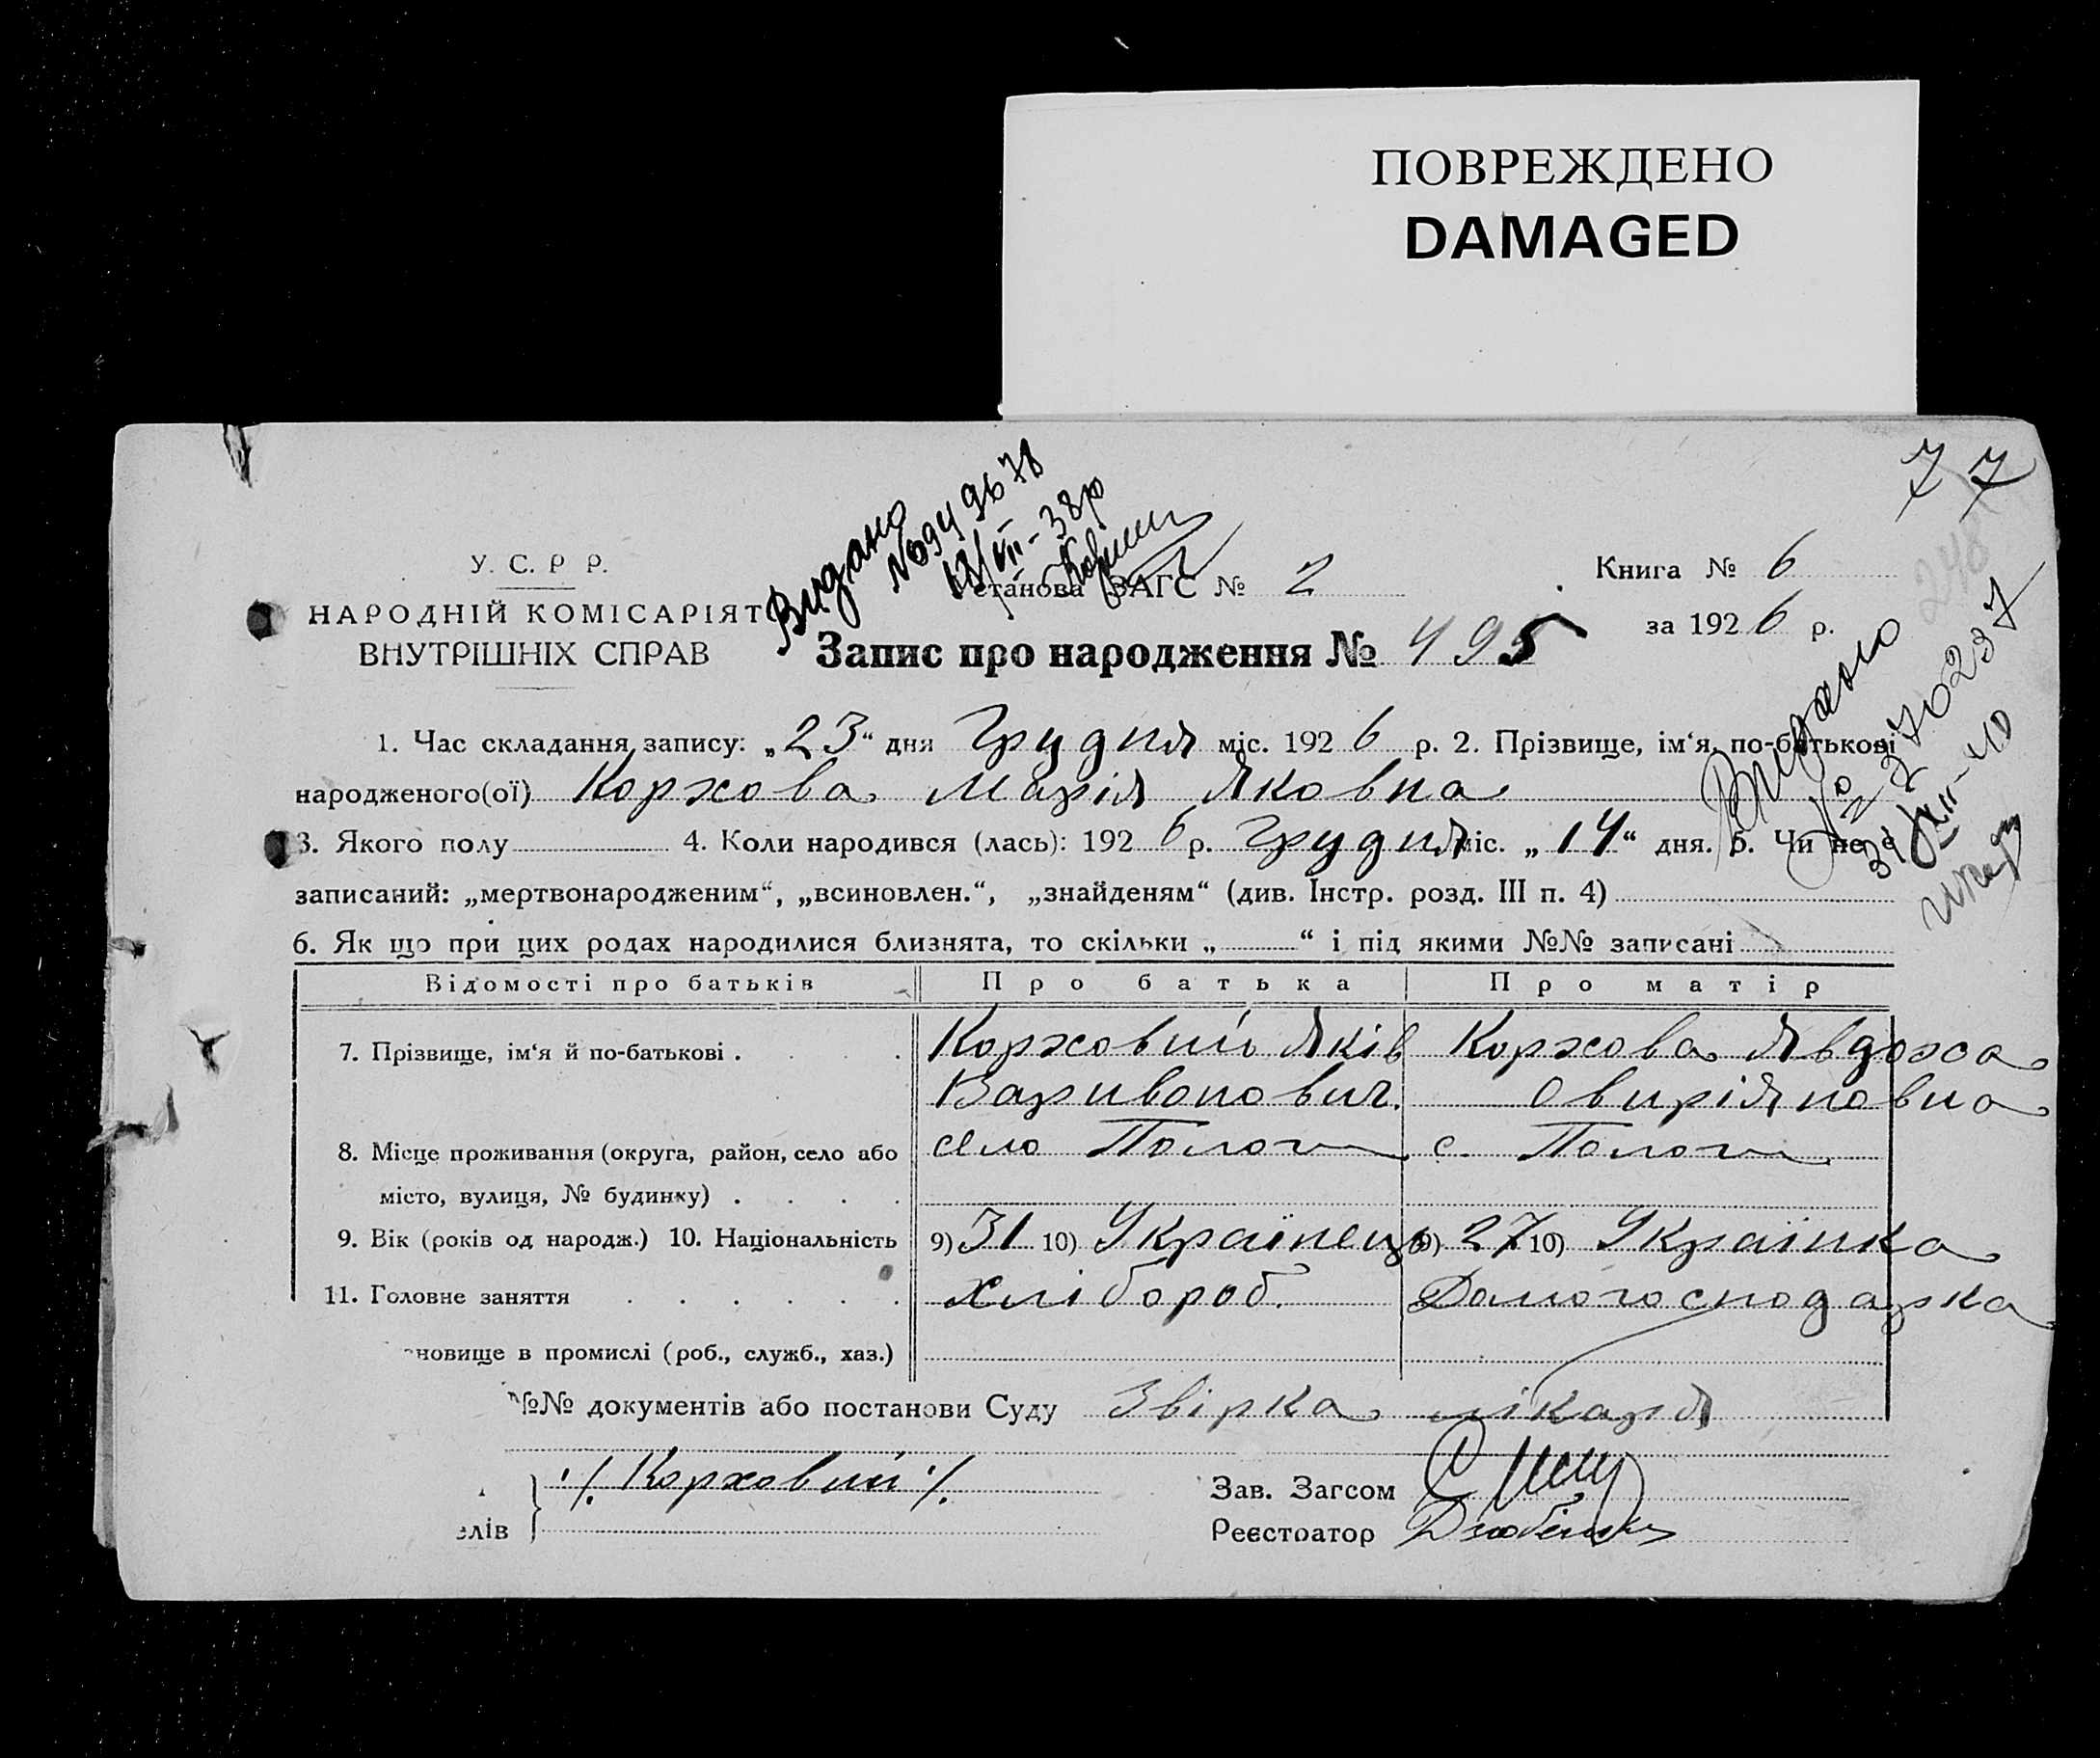 ПОВРЕЖДЕНО
DAMAGED
77
248
Видано
12/VII-38р
У. С. Р Р.
НАРОДНІЙ КОМІСАРІЯТ
ВНУТРІШНІХ СПРАВ
Установа ЗАГС № 2
Книга № 6
за 1926 р.
Запис про народження № 495
Видано
1. Час складання запису: „23“ дня Грудня міс. 1926 р. 2. Прізвище, ім‘я, по-батькові
народженого(ої) Коржова Марія Яковна
3. Якого полу 4. Коли народився (лась): 1926 р. Грудня міс. „14“ дня. 5. Чи не є
записаний: „мертвонародженим“, „всиновлен.“, „знайденям“ (див. Інстр. розд. III п. 4)
6. Як що при цих родах народилися близнята, то скільки „ “ і під якими №№ записані
Відомості про батьків Про батька Про матір
7. Прізвище, ім‘я й по-батькові . . . . Коржовий Яків Коржова Явдоха
Варивонович. Овиріяновна
8. Місце проживання (округа, район, село або село Пологи с. Пологи
місто, вулиця, № будинку) . . . .
9. Вік (років од народж.) 10. Національність 9) 31 10) Українець 9) 27 10) Українка
11. Головне заняття . . . . . . Хлібороб. Домогосподарка
новище в промислі (роб., служб., хаз.)
№№ документів або постанови Суду Звірка лікаря
./. Корховий ./.
Зав. Загсом
елів
Реєстратор